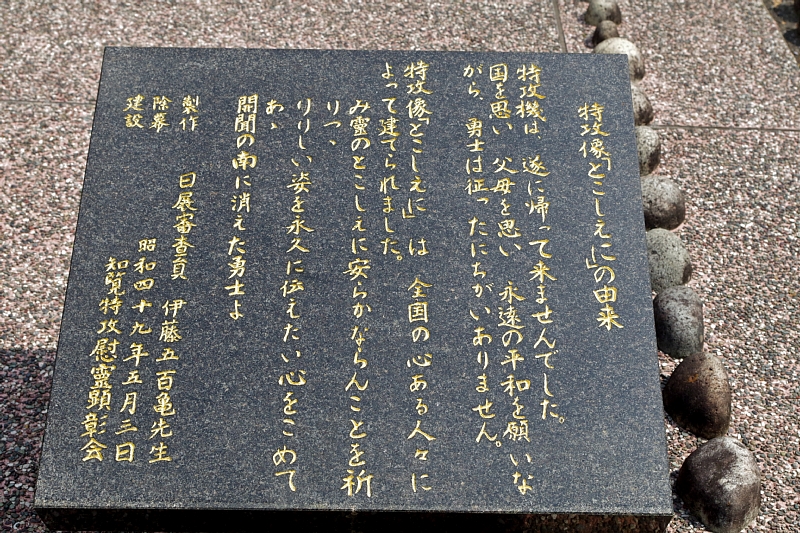 特攻像「とこしえに」の由来
特攻機は　遂に帰って来ませんでした。
国を思い　父母を思い　永遠の平和を願いな
がら、勇士は征ったにちがいありません。
特攻像「とこしえに」は　全国の心ある人々に
よって建てられました。
み霊のとこしえに安らかならんことを祈
りつゝ
りりしい姿を永久に伝えたい心をこめて
あゝ
開聞の南に消えた勇士よ
製作　日展審査員　伊藤五百亀先生
除幕　昭和四十九年五月三日
建設　知覧特攻慰霊顕彰会